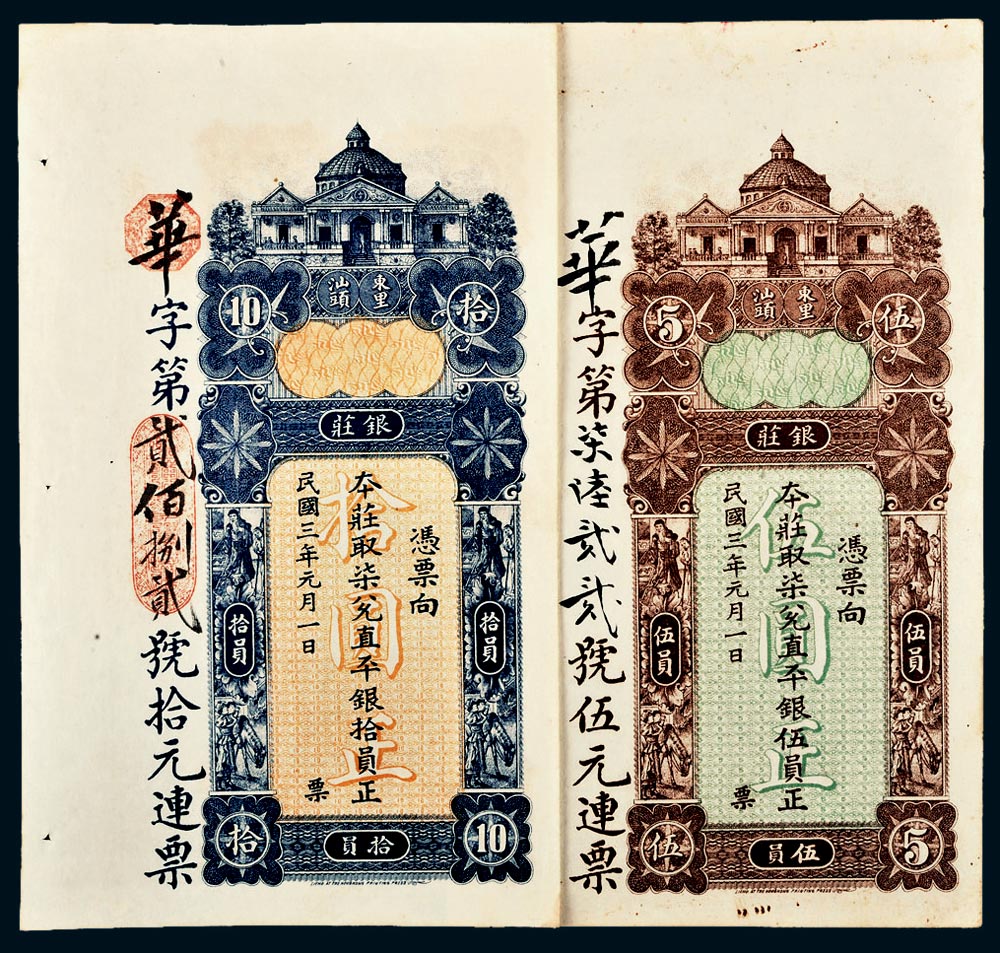 華字第貳佰捌貳號拾元連票
10
拾
汕頭
東里
銀莊
憑票向
本莊取柒兌直平銀拾員正
民國三年元月一日
票
拾圓正
拾員
拾員
拾
拾員
10
華字第柒陸貳貳號伍元連票
5
伍
汕頭
東里
銀莊
憑票向
本莊取柒兌直平銀伍員正
民國三年元月一日
票
伍圓正
伍員
伍員
伍
伍員
5